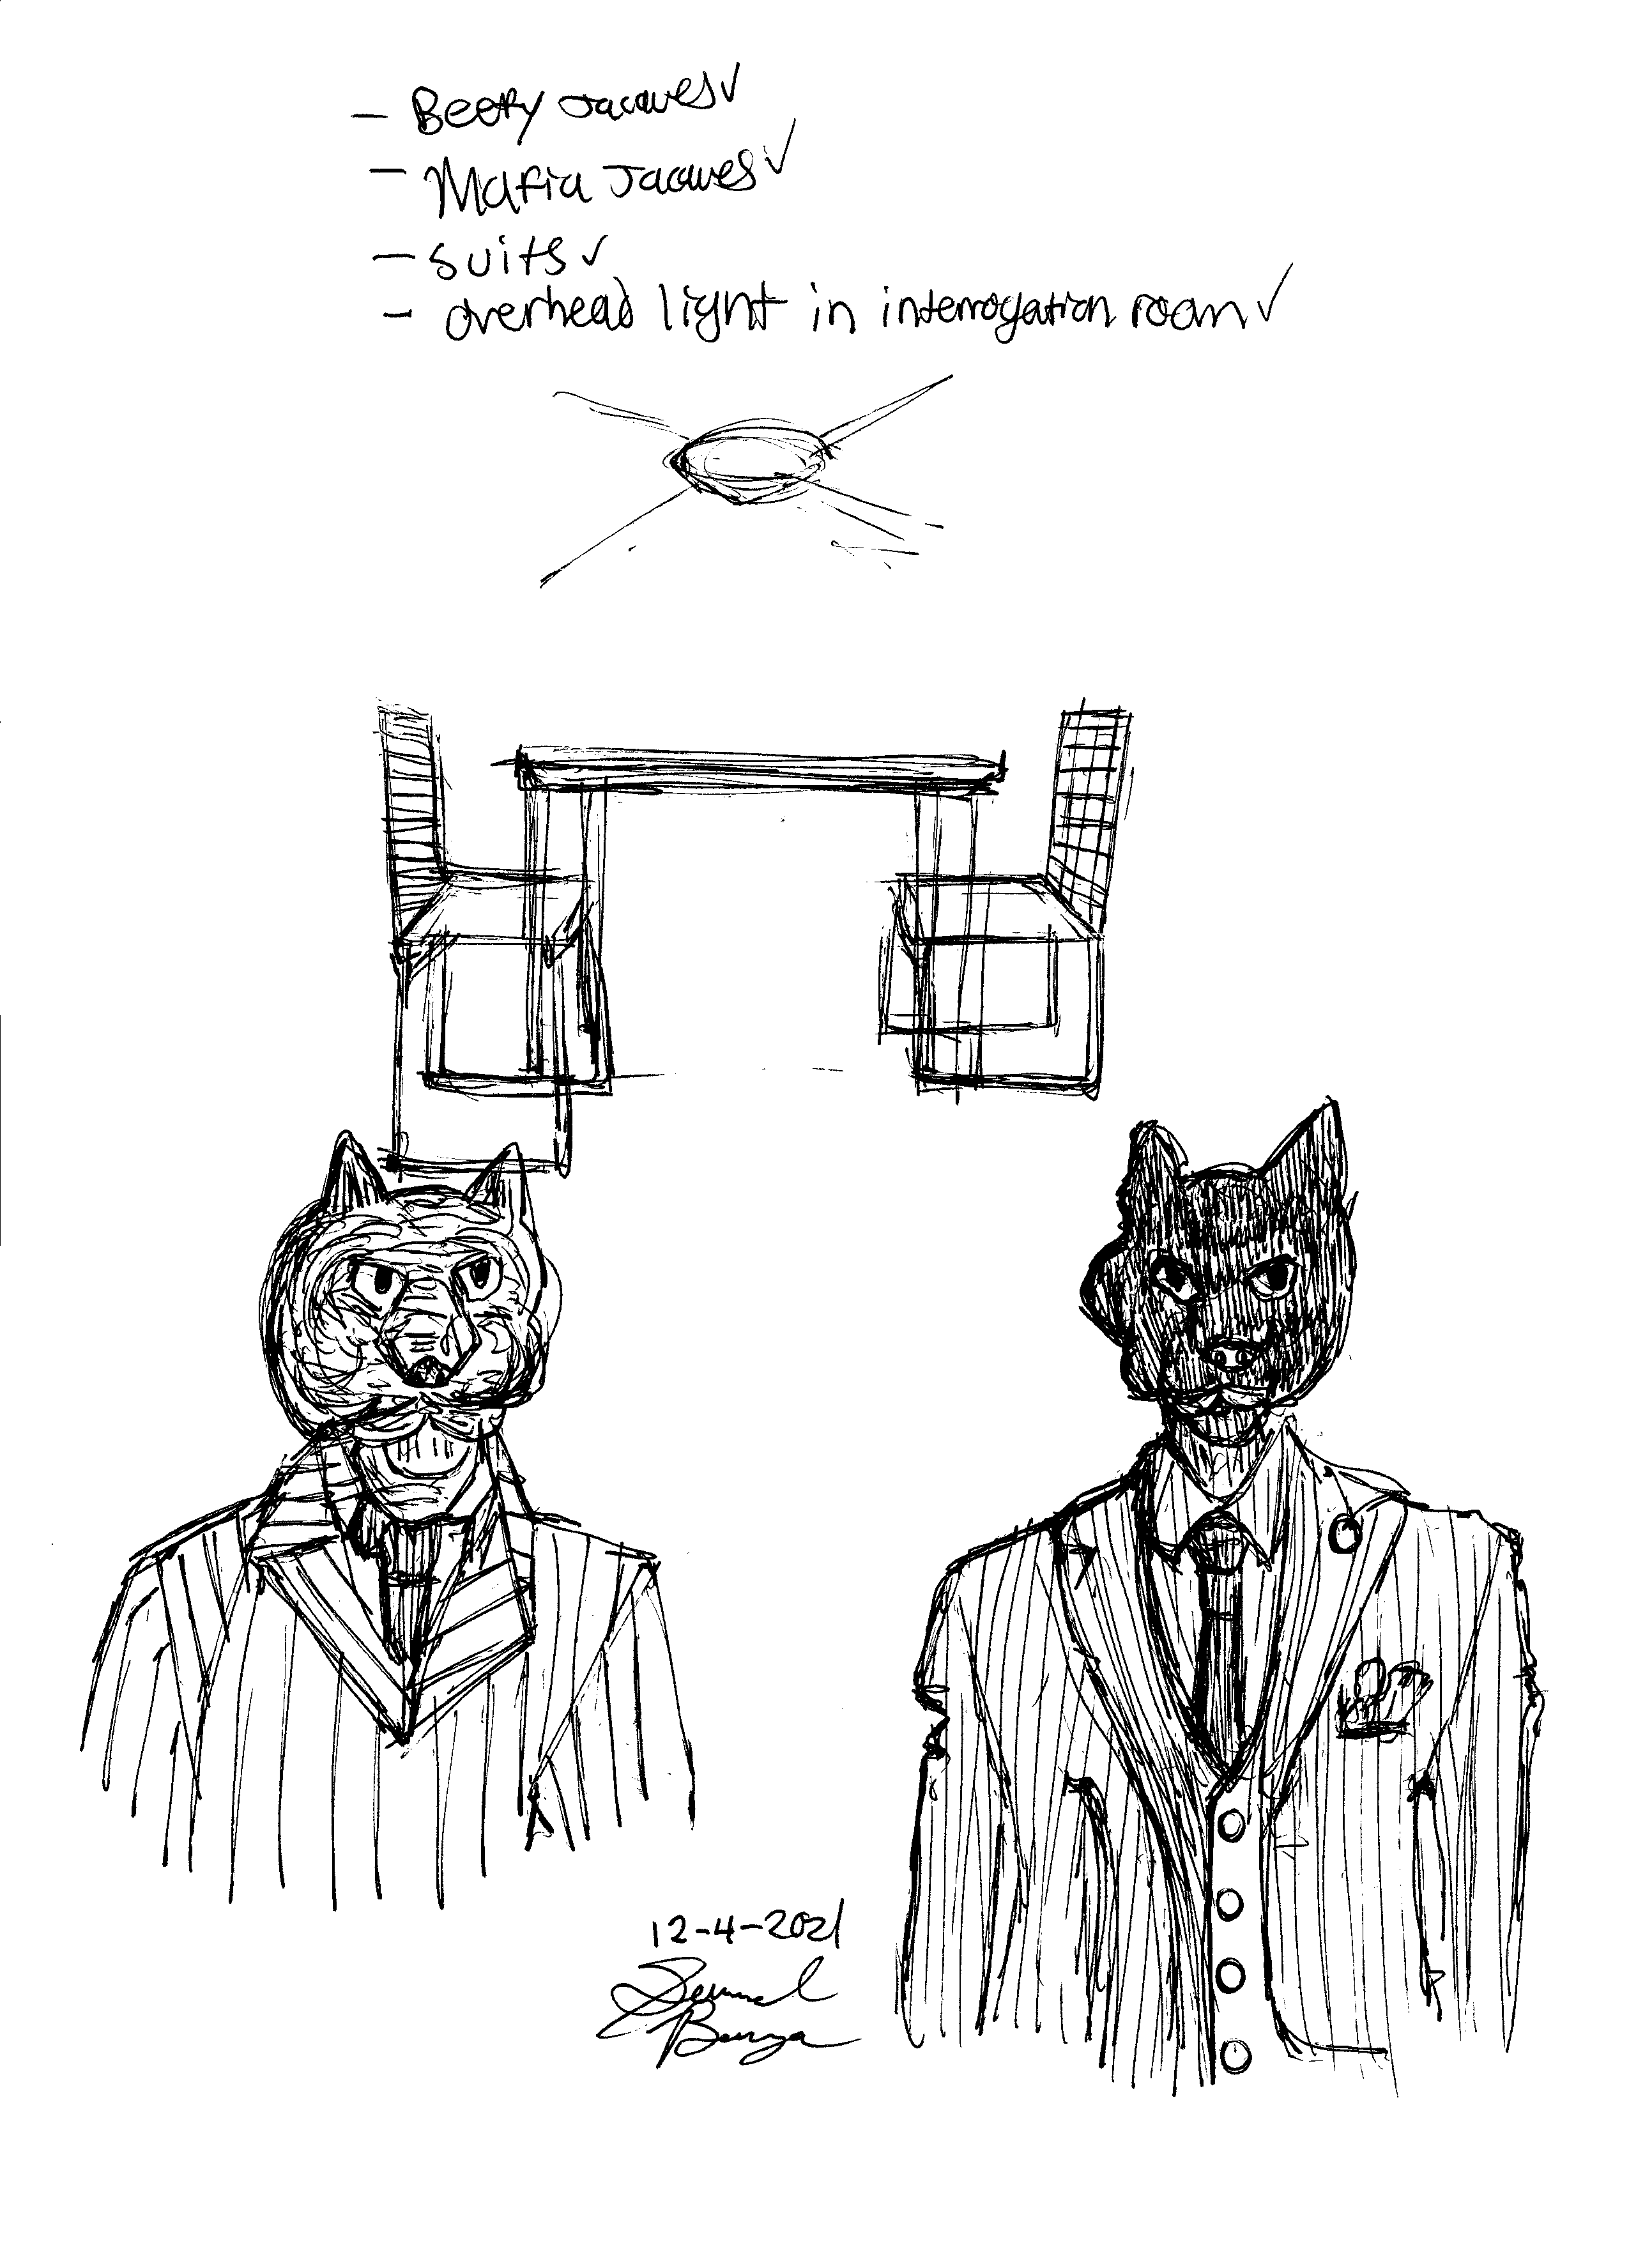 - Beefy Jacques ✓
- Mafia Jacques ✓
- suits ✓
- overhead light in interrogation room ✓
12-4-2021
Samuel